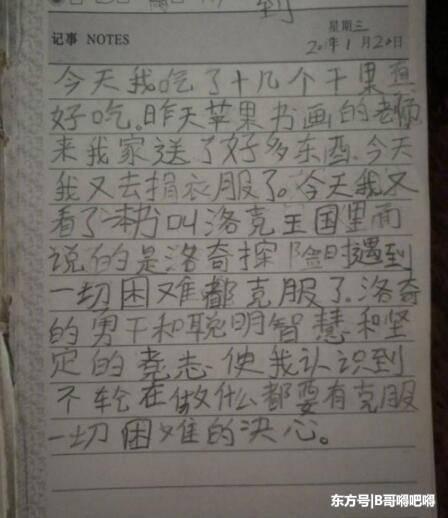 到
星期三
记事 NOTES
年1月20日
今天我吃了十几个干果真
好吃。昨天苹果书画的老师
来我家送了好多东西.今天
我又去捐衣服了。今天我又
看了一本书叫洛克王国里面
说的是洛奇探险时遇到
一切困难都克服了.洛奇
的勇干和聪明智慧和坚
定的意志.使我认识到
不轮在做什么都要有克服
一切困难的决心。
东方号|B哥嘚吧嘚